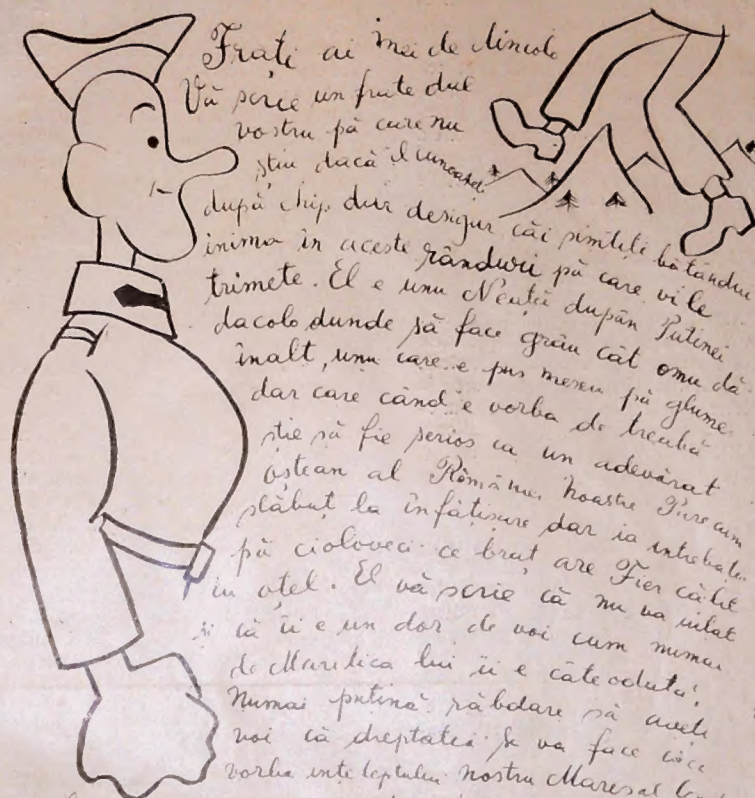 Frați ai mei de dincolo
Vă scrie un frate dal
vostru pă care nu
știu dacă îl cunoașteți
după chip dar desigur căi simțiți bătându
inima în aceste rânduri pă care vi le
trimete. El e unu Neață dupăn Putinei
dacolo dunde să face grâu cât omu dă
înalt, unu care e pus mereu pă glume
dar care când e vorba de treabă
știe să fie serios ca un adevărat
oștean al României noastre Pare cam
slăbuț la înfățișare dar ia întrebați
pă cioloveci ce braț are Fier călit
în oțel. El vă scrie că nu va uitat
și că îi e un dor de voi cum numai
de Marelica lui îi e câteodată.
Numai puțină răbdare să aveți
voi că dreptatea se va face căci
vorba înțeleptului nostru Mareșal